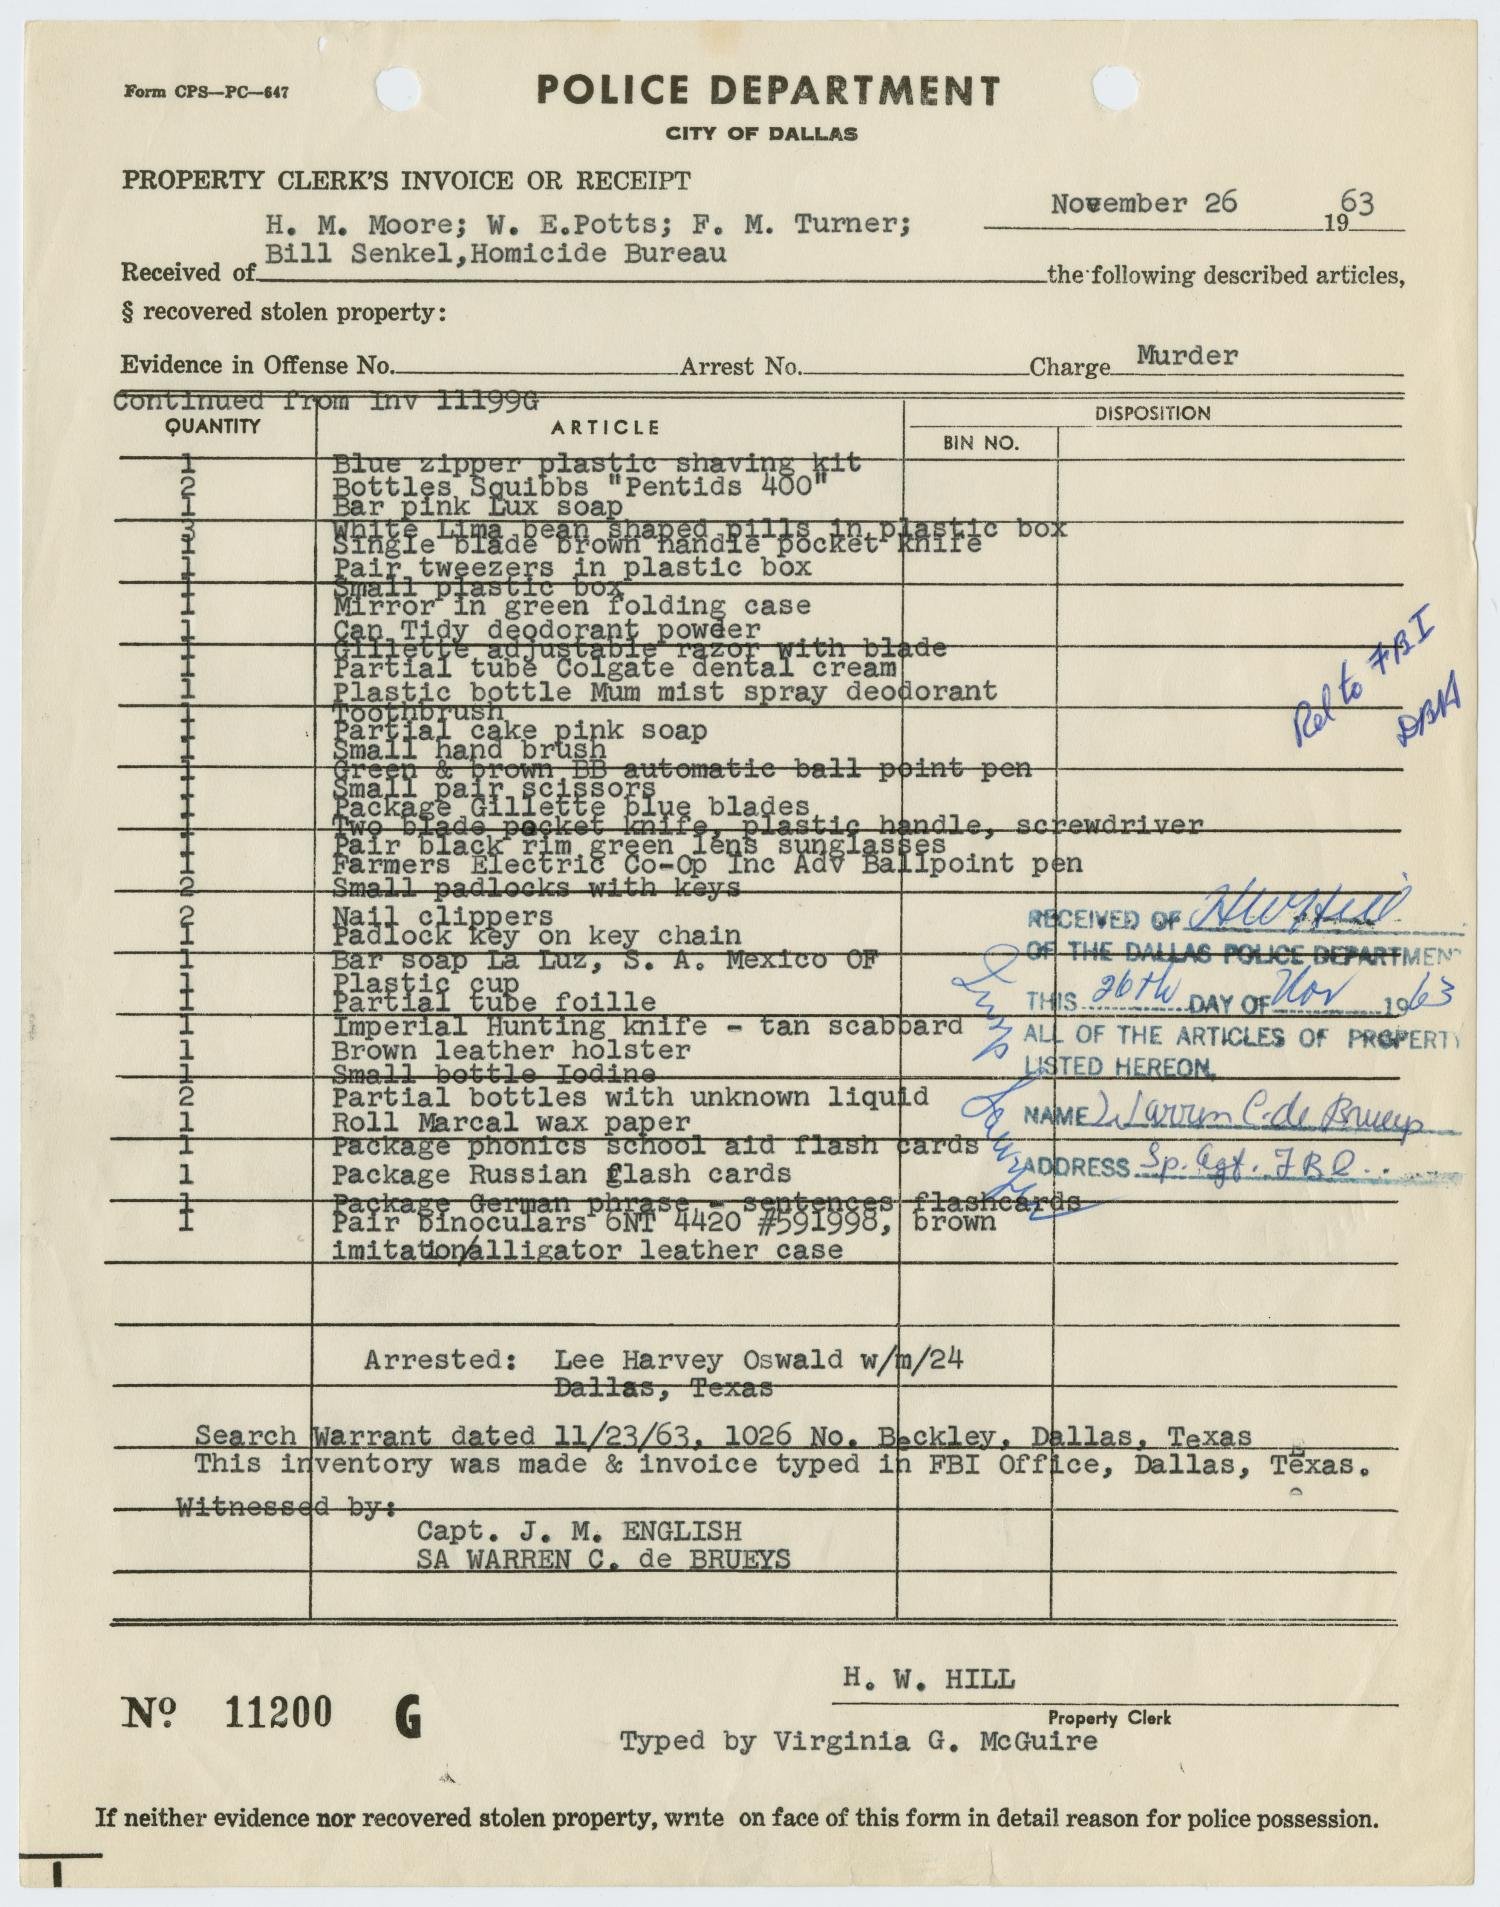 Form CPS—PC—647
POLICE DEPARTMENT
CITY OF DALLAS
PROPERTY CLERK'S INVOICE OR RECEIPT
November 26 1963
H. M. Moore; W. E.Potts; F. M. Turner;
Bill Senkel,Homicide Bureau
Received of the following described articles,
§ recovered stolen property:
Evidence in Offense No. Arrest No. Charge Murder
Continued from Inv 11199G
QUANTITY ARTICLE BIN NO. DISPOSITION
1 Blue zipper plastic shaving kit
2 Bottles Squibbs "Pentids 400"
1 Bar pink Lux soap
3 White Lima bean shaped pills in plastic box
1 Single blade brown handle pocket knife
1 Pair tweezers in plastic box
1 Small plastic box
1 Mirror in green folding case
1 Can Tidy deodorant powder
1 Gillette adjustable razor with blade
1 Partial tube Colgate dental cream
1 Plastic bottle Mum mist spray deodorant
1 Toothbrush
1 Partial cake pink soap
1 Small hand brush
1 Green & brown BB automatic ball point pen
1 Small pair scissors
1 Package Gillette blue blades
1 Two blade pocket knife, plastic handle, screwdriver
1 Pair black rim green lens sunglasses
1 Farmers Electric Co-Op Inc Adv Ballpoint pen
2 Small padlocks with keys
2 Nail clippers
1 Padlock key on key chain
1 Bar soap La Luz, S. A. Mexico OF
1 Plastic cup
1 Partial tube foille
1 Imperial Hunting knife - tan scabbard
1 Brown leather holster
1 Small bottle Iodine
2 Partial bottles with unknown liquid
1 Roll Marcal wax paper
1 Package phonics school aid flash cards
1 Package Russian flash cards
1 Package German phrase - sentences flashcards
1 Pair binoculars 6NT 4420 #591998, brown
imitation/alligator leather case
Rel to FBI
DBH
RECEIVED OF H W Hill
OF THE DALLAS POLICE DEPARTMENT
THIS 26th DAY OF Nov 1963
ALL OF THE ARTICLES OF PROPERTY
LISTED HEREON.
NAME Warren C. de Brueys
ADDRESS Sp. Agt. FBI
Arrested: Lee Harvey Oswald w/m/24
Dallas, Texas
Search Warrant dated 11/23/63, 1026 No. Beckley, Dallas, Texas
This inventory was made & invoice typed in FBI Office, Dallas, Texas.
Witnessed by:
Capt. J. M. ENGLISH
SA WARREN C. de BRUEYS
H. W. HILL
Property Clerk
No 11200 G
Typed by Virginia G. McGuire
If neither evidence nor recovered stolen property, write on face of this form in detail reason for police possession.